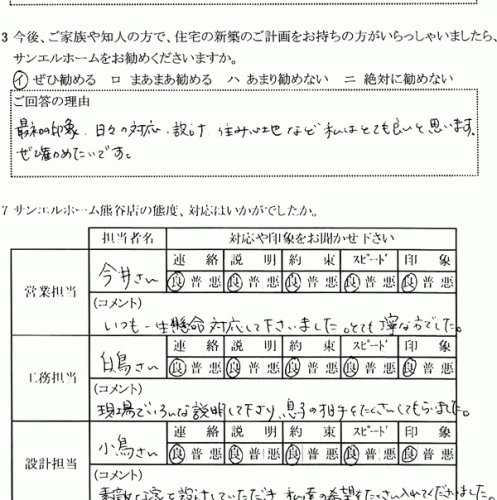 3 今後、ご家族や知人の方で、住宅の新築のご計画をお持ちの方がいらっしゃいましたら、
サンエルホームをお勧めくださいますか。
イ ぜひ勧める ロ まあまあ勧める ハ あまり勧めない ニ 絶対に勧めない
ご回答の理由
最初の印象、日々の対応、設計、住み心地など私はとても良いと思います。
ぜひ薦めたいです。
7 サンエルホーム熊谷店の態度、対応はいかがでしたか。
担当者名 対応や印象をお聞かせ下さい
営業担当 今井さん 連絡 説明 約束 スピード 印象
良 普 悪 良 普 悪 良 普 悪 良 普 悪 良 普 悪
(コメント)
いつも一生懸命対応して下さいました。とても丁寧な方でした。
工務担当 白鳥さん 連絡 説明 約束 スピード 印象
良 普 悪 良 普 悪 良 普 悪 良 普 悪 良 普 悪
(コメント)
現場でいろんな説明して下さり、息子の相手をたくさんしてもらいました。
設計担当 小鳥さん 連絡 説明 約束 スピード 印象
良 普 悪 良 普 悪 良 普 悪 良 普 悪 良 普 悪
(コメント)
素敵な家を設計していただき、私達の希望をたくさん入れてくださいました。